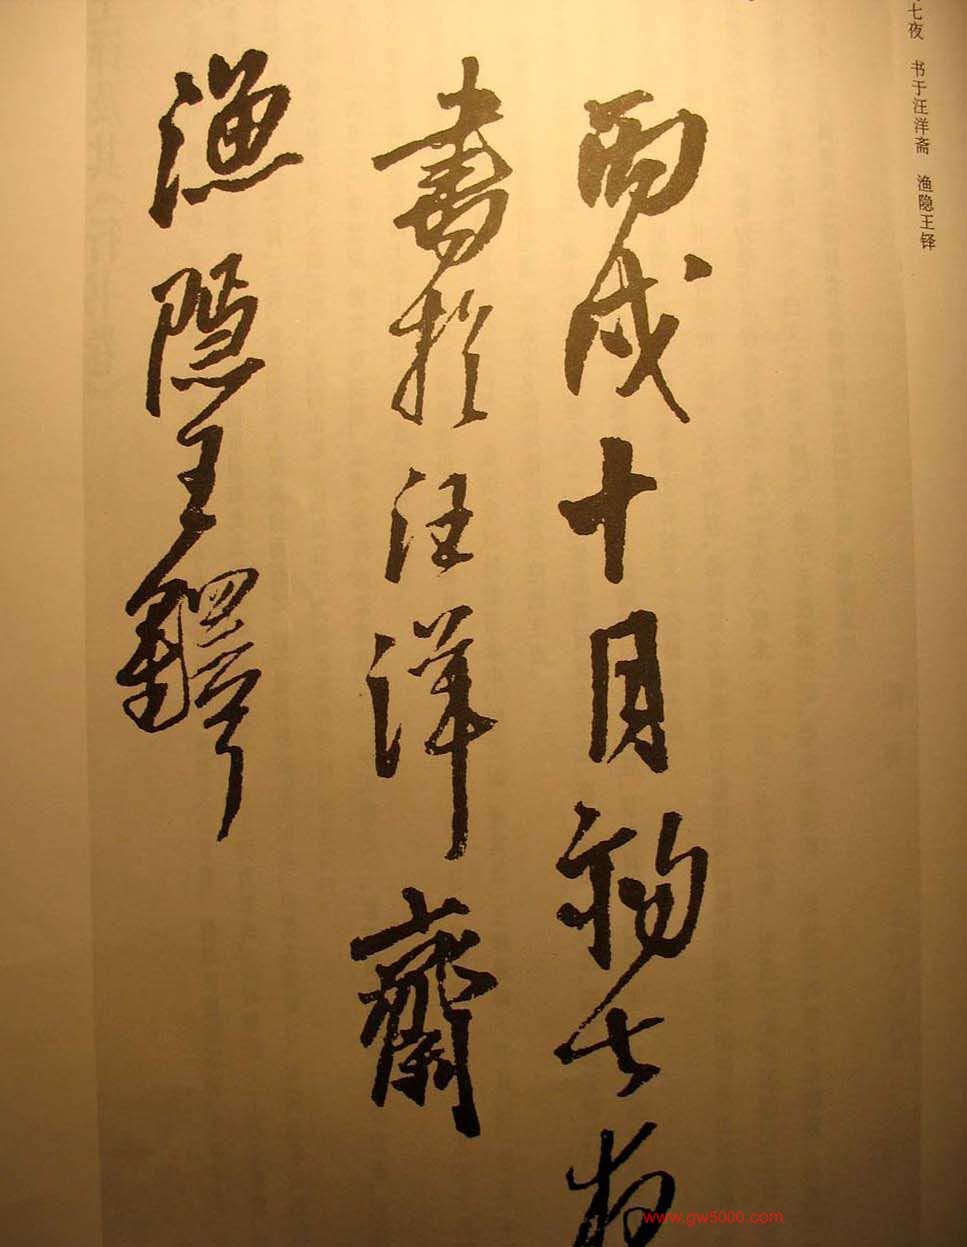 七夜 书于汪洋斋 渔隐王铎
丙戌十月初七夜
書於汪洋齋
漁隱王鐸
www.gw5000.com